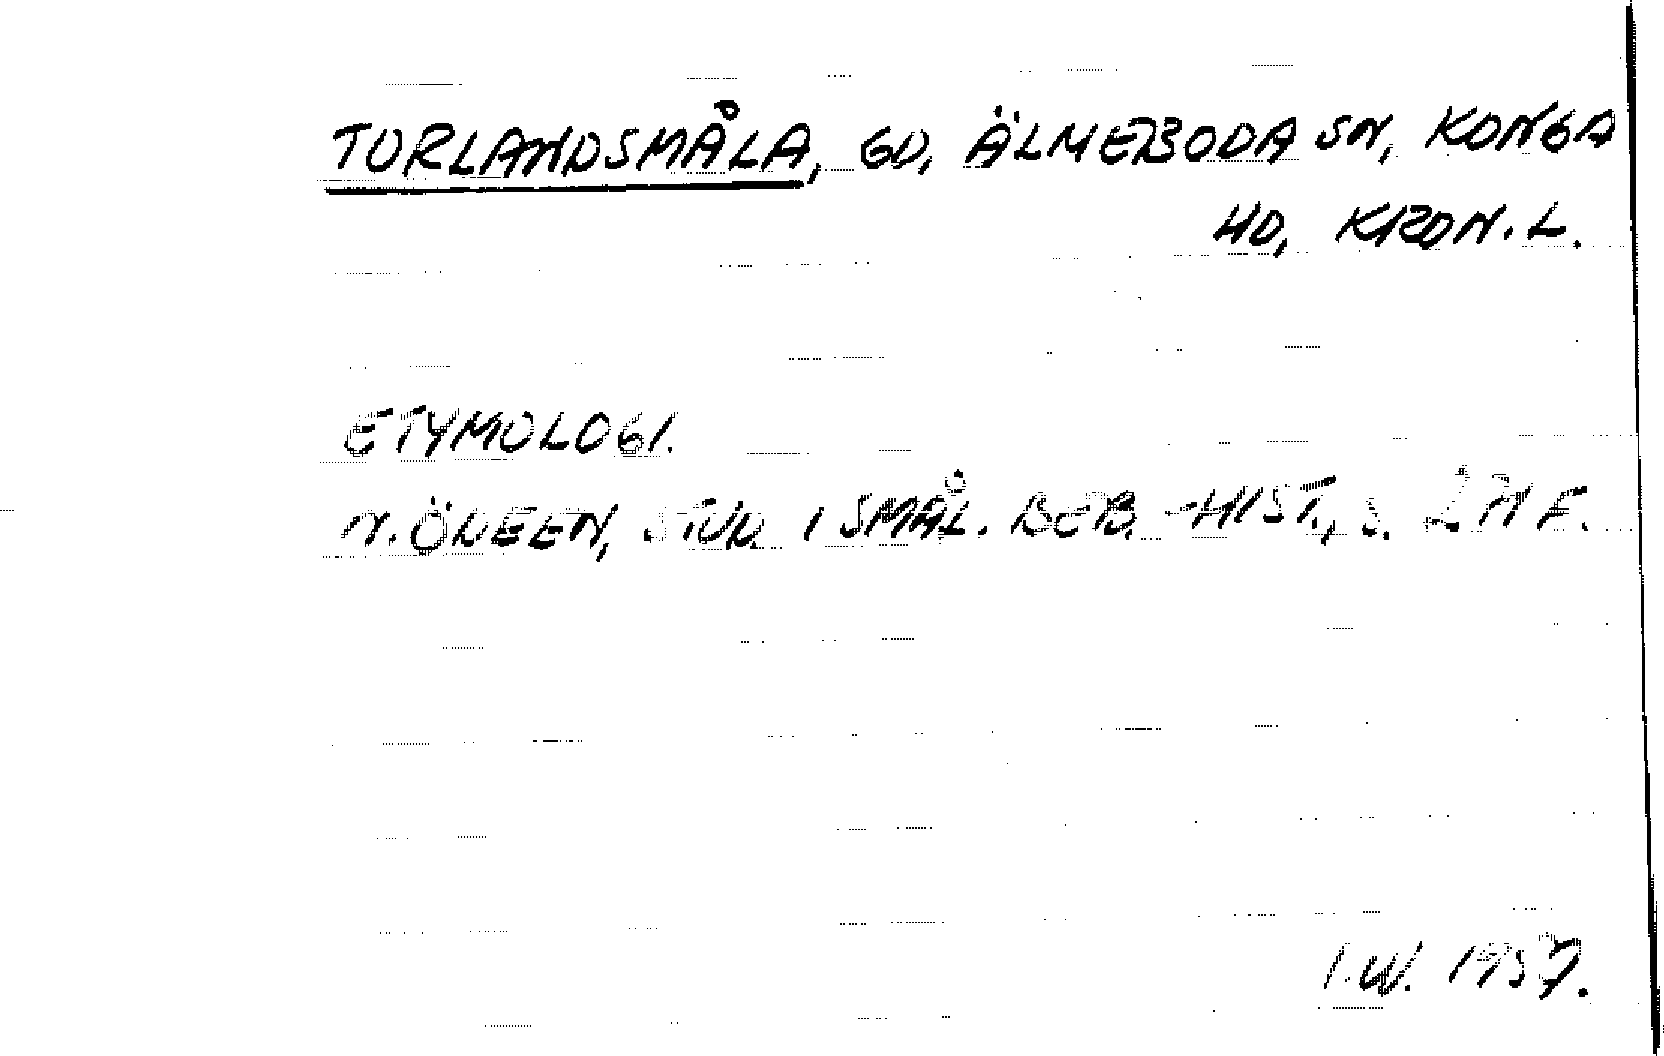 TORLANDSMÅLA, GD, ÄLMEBODA SN, KONGA
HD, KRON. L.
ETYMOLOGI.
N. ÖDEEN, STUD. I SMÅL. BEB.-HIST., S.
I.W. 1957.